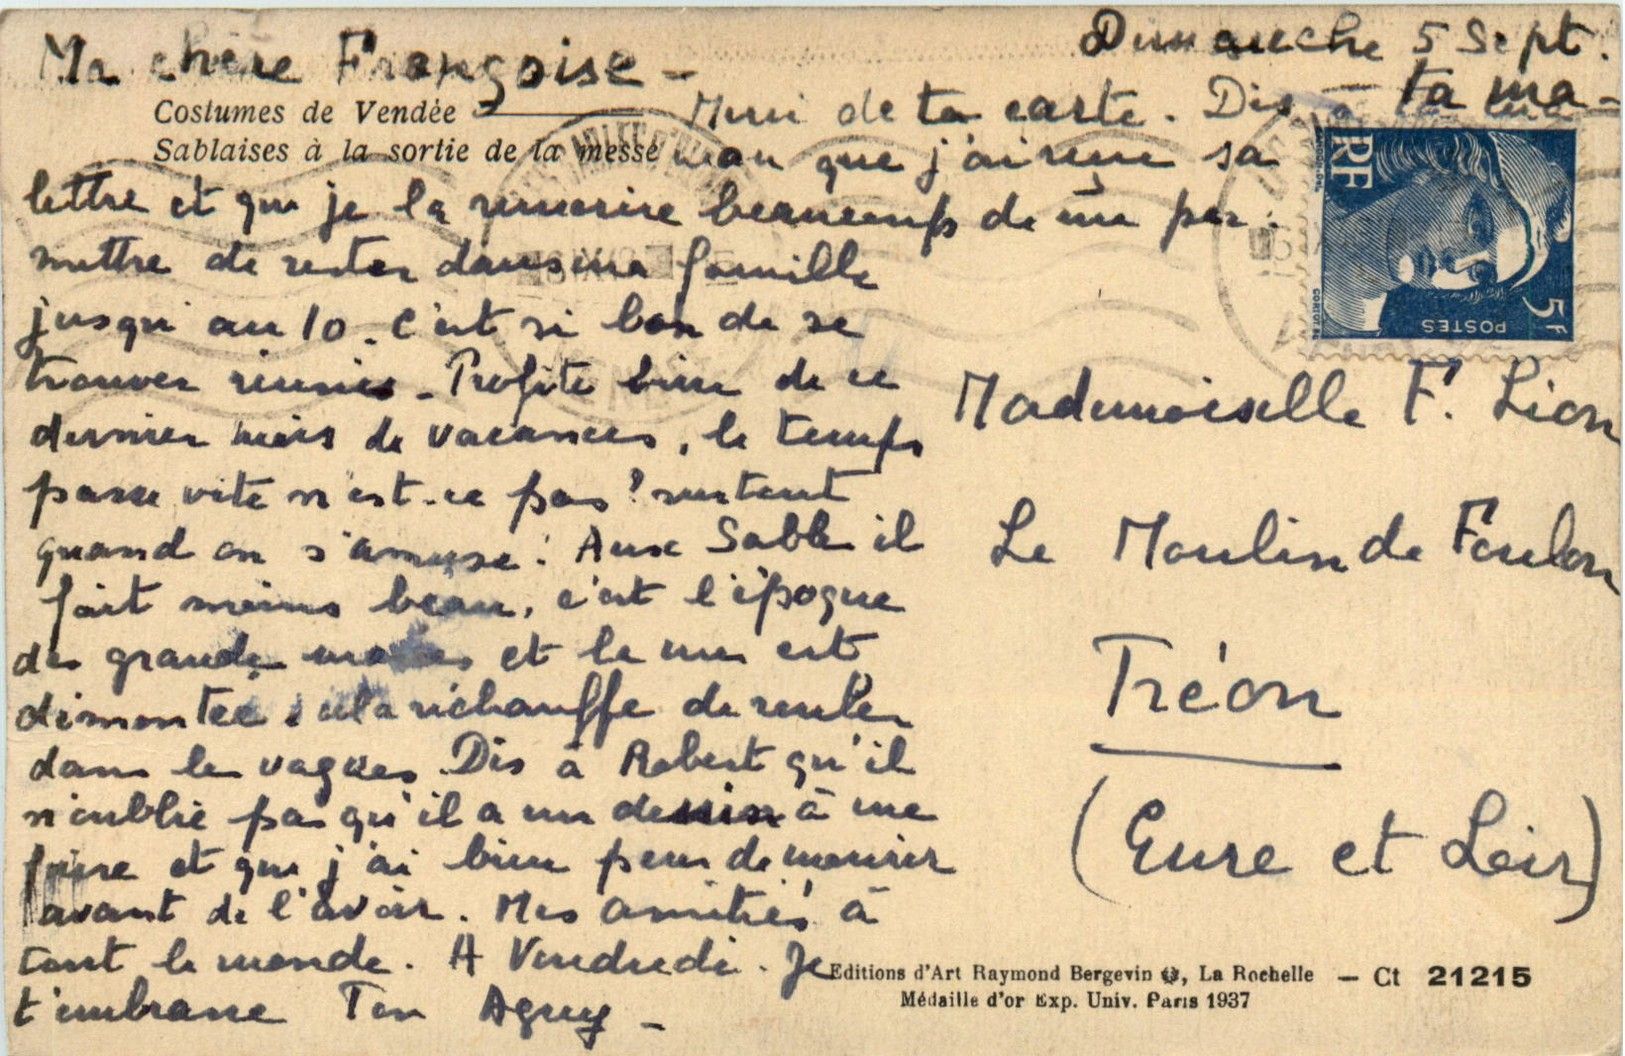 Dimanche 5 Sept.
Ma chère Françoise -
Costumes de Vendée
Merci de ta carte. Dis à ta ma-
Sablaises à la sortie de la messe
man que j'ai reçu sa
lettre et que je la remercie beaucoup de me per-
mettre de rester dans ma famille
jusqu'au 10. C'est si bon de se
trouver réunis - Profite bien de ce
dernier mois de vacances, le temps
passe vite n'est-ce pas ? surtout
quand on s'amuse. Aux Sables il
fait moins beau, c'est l'époque
des grandes marées et la mer est
démontée, cela réchauffe de
dans les vagues. Dis à Robert qu'il
n'oublie pas qu'il a un dessin à me
faire et que j'ai bien peur de mourir
avant de l'avoir. Mes amitiés à
tout le monde. A Vendredi. Je
t'embrasse Ton Aguy -
RF
5F
POSTES
Mademoiselle F. Lion
Le Moulin de Foulon
Tréon
(Eure et Loir)
Editions d'Art Raymond Bergevin, La Rochelle - Ct 21215
Médaille d'or Exp. Univ. Paris 1937